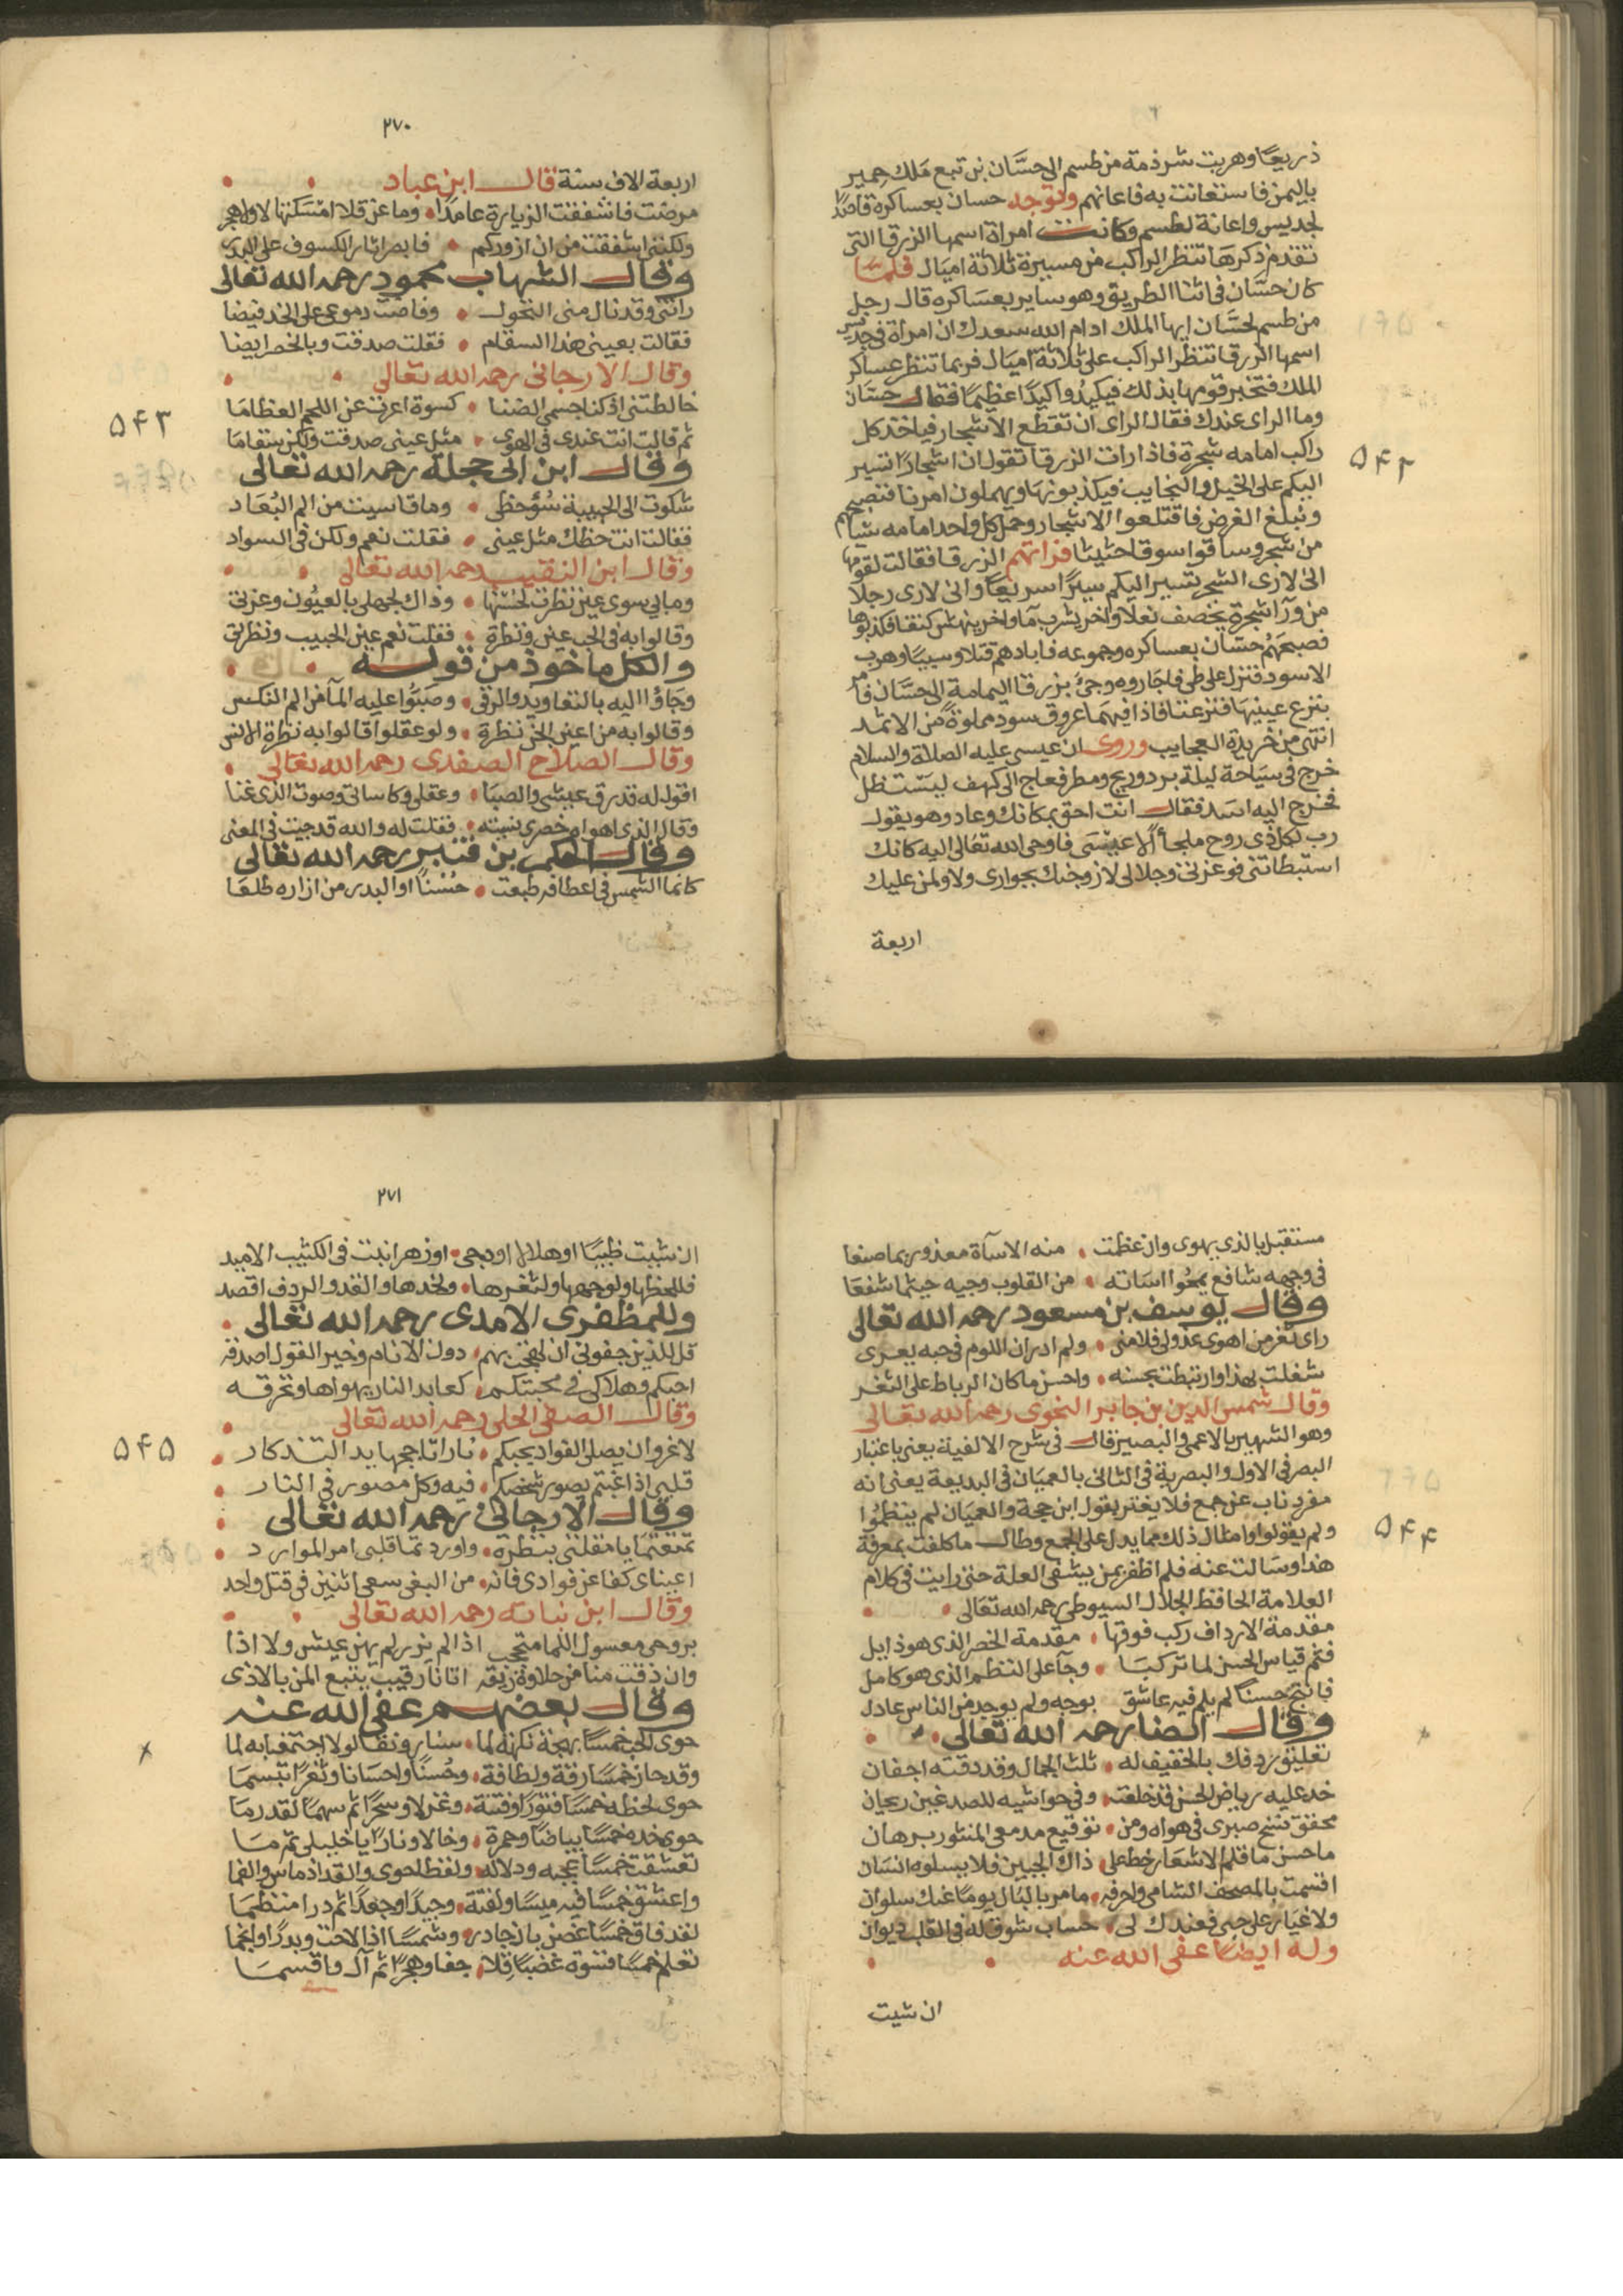 ذريعًا وهربت شرذمة من طسم الى حسَّان بن تبع مَلك حِمير
باليمن فاستغاثت به فاغاثهم وتوجه حسان بعساكره قاصدًا
لجديس واغاثة لطسم وكانت امراة اسمها الزرقا التى
تقدم ذكرها تنظر الراكب من مسيرة ثلاثة اميال فلما
كان حسَّان فى اثنا الطريق وهو ساير بعسَاكره قال رجل
من طسم لحسَّان ايها الملك ادام الله سعدك ان امراة فى جديس
اسمها الزرقا تنظر الراكب على ثلاثة اميال فربما تنظر عساكر
الملك فتخبر قومها بذلك فيكيدُوا كيدًا عظيمًا فقال حسَّان
وما الراى عندك فقال الراى ان تقطع الاشجار فياخذ كل
راكب امامه شجرة فاذا رات الزرقا تقول ان اشجارًا تسير
اليكم على الخيل والنجايب فيكذبونها ويهملون امرنا فنصبحهم
ونبلغ الغرض فاقتلعوا الاشجار وحمل كل واحد امامه شيا
من شجر وساقوا سوقا حثيثا فراتهم الزرقا فقالت لقومها
انى لارى الشجر تسير اليكم سيرًا سريعًا وانى لارى رجلا
من ورآ شجرة يخصف نعلا واخر يشرب مآ واخر ينهش كتفا فكذبوها
فصبحَهُم حسَّان بعساكره وجموعه فابادهم قتلا وسبيًا وهرب
الاسود فنزل على طى فاجاروه وجئ بزرقا اليمامة الى حسَّان فامر
بنزع عينيها فنزعتا فاذا فيهمَا عروق سود مملوة من الاثمد
انتهى من خريدة العجايب وروى ان عيسى عليه الصلاة والسلام
خرج فى سيَاحة ليلة برد وريح ومطر فعاج الى كهف ليسْتظل
فخرج اليه اسَد فقال انت احق بمكانك وعاد وهو يقول
رب لكل ذى روح ملجأ الا عيْسَى فاوحى الله تعَالى اليه كانك
استبطاتنى فوعزتى وجلالى لازوجنك بجوارى ولاولمن عليك
اربعة
٢٧٠
اربعة الاف سنة قال ابن عباد
مرضت فاشفقت الزيارة عامدًا وما عن قلا امسَكتها لا ولا هجر
ولكننى اشفقت من ان ازوركم فابصر اثار الكسوف على البدر
وقال الشهاب محمود رحمه الله تعالى
راتنى وقد نال منى النحول وفاضت دموعى على الخد فيضا
فقالت بعينى هذا السقام فقلت صدقت وبالخصر ايضا
وقال الارجانى رحمه الله تعالى
خالطتنى اذ كنا جسمى الضنا كسوة اعرت عن اللحم العظامَا
ثم قالت انت عندى فى الهوى مثل عينى صدقت ولكن سقامَا
وقال ابن ابى حجلة رحمه الله تعالى
شكوت الى الحبيبة سُؤ حظى وما قاسيت من الم البُعَاد
فقالت انت حظك مثل عينى فقلت نعم ولكن فى السواد
وقال ابن النقيب رحمه الله تعالى
ومابى سوى عين نظرت لحسْنها وذاك لجهلى بالعيُون وعزتى
وقالوا به فى الحب عين ونظرة فقلت نعم عين الحبيب ونظرتى
والكل ماخوذ من قوله
وجَاؤا اليه بالتعاويد والرقى وصَبّوا عليه المآ من الم النكس
وقالوا به من اعين الجن نظرة ولو عقلوا قالوا به نظرة الانس
وقال الصلاح الصفدى رحمه الله تعالى
اقول له قد رق عيشى والصبَا وعقلى وكاساتى وصوت الذى غنا
وقال الذى اهواه خصرى نسيته فقلت له والله قد جيت فى المعنى
وقال الحكم بن قنبر رحمه الله تعالى
كانما الشمس فى اعطافه طبعت حُسْنًا او البدر من ازراره طلعَا
٥٤٣
٥٤٢
مستقبل بالذى يهوى وان عظمت منه الاسآة معذور بما صنعا
فى وجهه شافع يمحُوا اسَاته من القلوب وجيه حيثما شفعَا
وقال يوسف بن مسعود رحمه الله تعالى
راى ثغر من اهوى عذولى فلامنى ولم ادر ان اللوم فى حبه يغرى
شغلت بهذا وارتبطت بحسنه واحسن ما كان الرباط على الثغر
وقال شمس الدين بن جابر النحوى رحمه الله تعالى
وهو الشهير بالاعمى والبصير قال فى شرح الالفية يعنى باعتبار
البصر فى الاول والبصرية فى الثانى بالعميَان فى البديعة يعنى انه
مفرد ناب عن جمع فلا يغتر بقول ابن حجة والعميَان لم ينظمُوا
ولم يقولوا وامثال ذلك مما يدل على الجمع وطال ما كلفت بمعرفة
هذا وسَالت عنه فلم اظفر بمن يشفى العلة حتى رايت فى كلام
العلامة الحافظ الجلال السيوطى رحمه الله تعَالى
مقدمة الارداف ركب فوقها مقدمة الخصر الذى هو ذابل
فتم قياس الحسن لما تركبَا وجآ على النظم الذى هو كامل
فانتج حسنًا لم يلم فيه عاشق بوجه ولم يوجد من الناس عادل
وقال ايضا رحمه الله تعالى
تعليق ردفك بالخفيف له ثلث الجمال وقد وقته اجفان
خد عليه رياض الحسن قد خلعت وفى حواشيه للصدغين ريحان
محقق نسخ صبرى فى هواه ومن توقيع مدمعى المنثور برهان
ما حسن ما قلم الاشعار خط على ذاك الجبين فلا يسلوه انسَان
اقسمت بالمصحف الشامى واحرفه ما مر بالبَال يومًا عنك سلوان
ولا غبَار على حبى فعندك لى حساب شوق له فى القلب ديوان
وله ايضًا عفى الله عنه
ان شيت
٢٧١
ان شيت ظبيًا او هلالا او دجى او زهرا نبت فى الكثيب الاميد
فللحظها ولوجهها ولثغرها ولخدها والقد والردف اقصد
وللمظفرى الامدى رحمه الله تعالى
قل للذين جفونى اذ لهجت بهم دون الانام وخير القول اصدقه
احبكم وهلاكى فى محبتكم كعابد النار يهواها وتحرقه
وقال الصفى الحلى رحمه الله تعالى
لا غرو ان يصلى الفواد بحبكم نارا تاججها يد التذكار
قلبى اذا غبتم يصور شخصكم فيه وكل مصور فى النار
وقال الارجانى رحمه الله تعالى
تمتعتمَا يا مقلتى بنظرة واوردتما قلبى امر الموارد
اعيناى كفا عن فوادى فانه من البغى سعى اثنين فى قتل واحد
وقال ابن نباته رحمه الله تعالى
بروحى معسول اللما متجنب اذا لم يزر لم يهن عيش ولا اذا
وان ذقت منا من حلاوة ريقه اتانا رقيب يتبع المن بالاذى
وقال بعضهم عفى الله عنه
وقد حاز خمسًا رقة ولطافة وحُسنًا واحسَانا وثغرًا تبسمَا
حوى لحظه خمسًا فتورًا وفتنة وغزلا وسحرًا ثم سهمًا لقد رمَا
حوى خده خمسًا بياضًا وحمرة وخالا ونارًا يا خليلى ثم مَا
تعشقت خمسًا عجبه ودلاله ولفظ لحوى والقد اذ ماس والفما
واعشق خمسًا فيه ميسًا ولفتة وجيدًا وجعدًا ثم درا منظمَا
لقد فاق خمسًا غصن بان وشمسًا اذا لاحت وبدرًا وانجما
تعلم خمسًا قسْوة غضبًا قلا جفا وهجرًا ثم آل واقسمَا
٥٤٥
٥٤٤